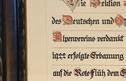 Die Sektion
des Deutschen und Ös
Alpenvereins verdankt
1922 erfolgte Erbauung
auf die Rote Flüh dem E